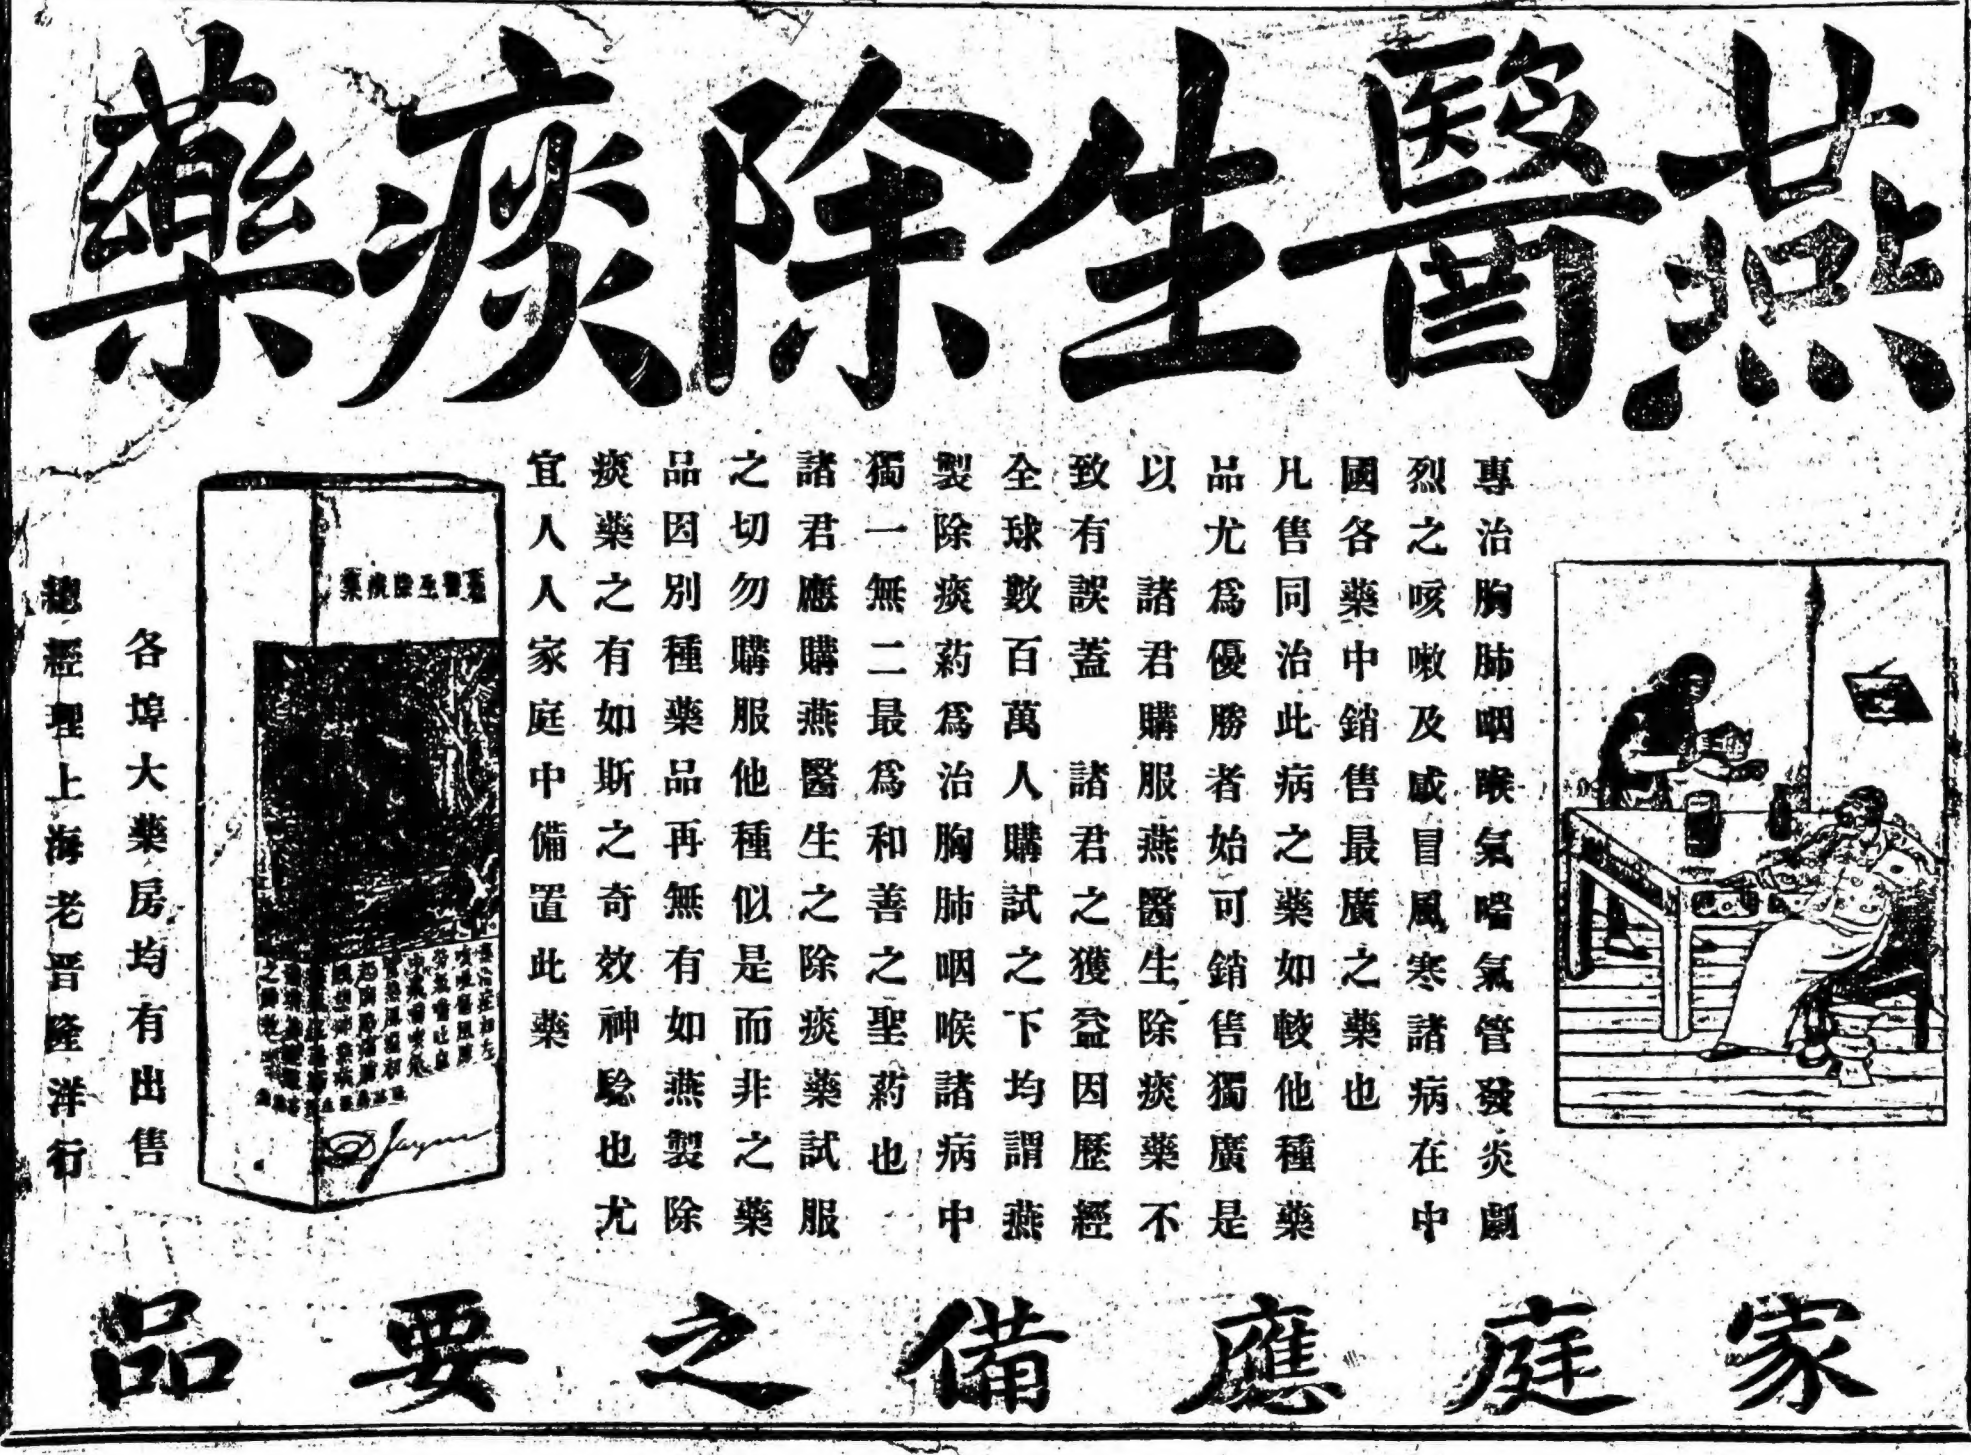 燕醫生除痰藥
專治胸肺咽喉氣喘氣管發炎劇
烈之咳嗽及感冒風寒諸病在中
國各藥中銷售最廣之藥也
凡售同治此病之藥如較他種藥
品尤爲優勝者始可銷售獨廣是
以 諸君購服燕醫生除痰藥不
致有誤蓋 諸君之獲益因歷經
全球數百萬人購試之下均謂燕
製除痰葯爲治胸肺咽喉諸病中
獨一無二最爲和善之聖葯也
諸君應購燕醫生之除痰藥試服
之切勿購服他種似是而非之藥
品因別種藥品再無有如燕製除
痰藥之有如斯之奇效神騐也尤
宜人人家庭中備置此藥
燕醫生除痰藥
D Jayne
各埠大藥房均有出售
總經理上海老晋隆洋行
家庭應備之要品